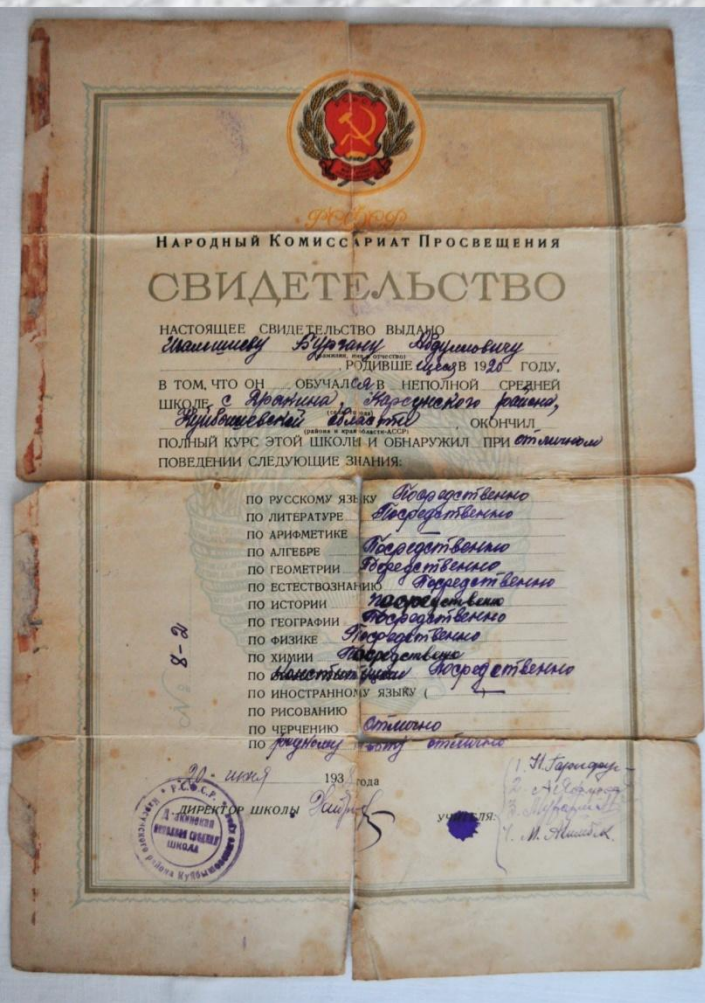 РСФСР
НАРОДНЫЙ КОМИССАРИАТ ПРОСВЕЩЕНИЯ
СВИДЕТЕЛЬСТВО
НАСТОЯЩЕЕ СВИДЕТЕЛЬСТВО ВЫДАНО
Бурхану Абдулловичу
фамилия, имя, отчество
РОДИВШЕМУСЯ В 1920 ГОДУ,
В ТОМ, ЧТО ОН ОБУЧАЛСЯ В НЕПОЛНОЙ СРЕДНЕЙ
ШКОЛЕ с Карсунского района,
Куйбышевской области, ОКОНЧИЛ
(района и края области-АССР)
ПОЛНЫЙ КУРС ЭТОЙ ШКОЛЫ И ОБНАРУЖИЛ ПРИ отличном
ПОВЕДЕНИИ СЛЕДУЮЩИЕ ЗНАНИЯ:
ПО РУССКОМУ ЯЗЫКУ Посредственно
ПО ЛИТЕРАТУРЕ Посредственно
ПО АРИФМЕТИКЕ
ПО АЛГЕБРЕ Посредственно
ПО ГЕОМЕТРИИ Посредственно
ПО ЕСТЕСТВОЗНАНИЮ Посредственно
ПО ИСТОРИИ посредственно
ПО ГЕОГРАФИИ Посредственно
ПО ФИЗИКЕ Посредственно
ПО ХИМИИ Посредственно
ПО конституции Посредственно
ПО ИНОСТРАННОМУ ЯЗЫКУ (
ПО РИСОВАНИЮ
ПО ЧЕРЧЕНИЮ Отлично
ПО родному отлично
№ 8-2
20 193 года
ДИРЕКТОР ШКОЛЫ
УЧИТЕЛЯ:
1.
2.
3.
4. М.
Р.С.Ф.С.Р.
СРЕДНЯЯ
ШКОЛА